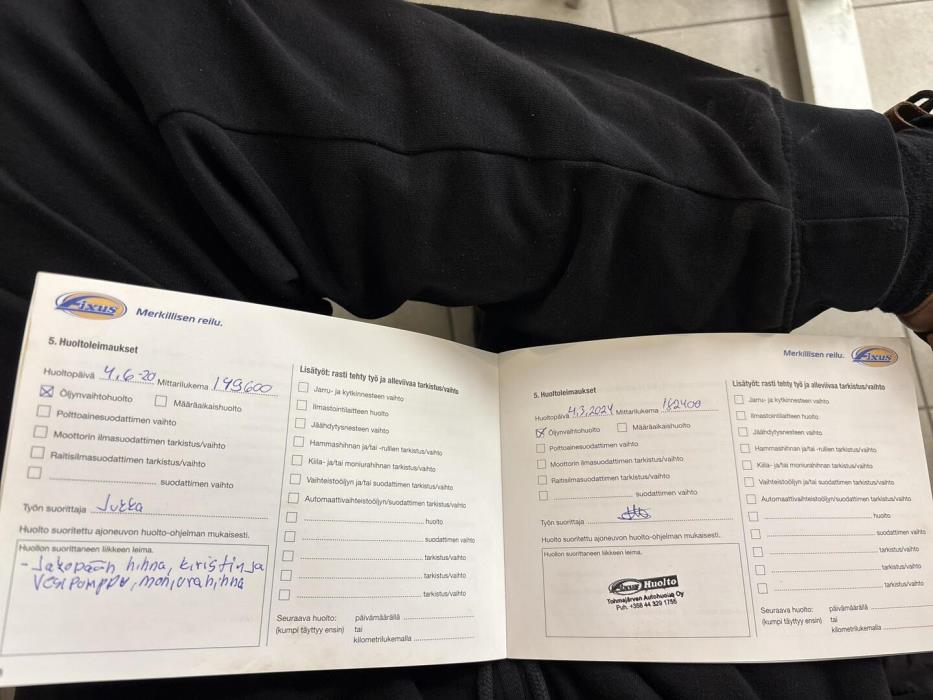 Fixus Merkillisen reilu.
5. Huoltoleimaukset
Huoltopäivä 4,6-20 Mittarilukema 149600
Öljynvaihtohuolto Määräaikaishuolto
Polttoainesuodattimen vaihto
Moottorin ilmasuodattimen tarkistus/vaihto
Raitisilmasuodattimen tarkistus/vaihto
suodattimen vaihto
Työn suorittaja Jukka
Huolto suoritettu ajoneuvon huolto-ohjelman mukaisesti.
Huollon suorittaneen liikkeen leima.
- Jakopään hihna, kiristin ja
vesipomppu, moniurahihna
Lisätyöt: rasti tehty työ ja alleviivaa tarkistus/vaihto
Jarru- ja kytkinnesteen vaihto
Ilmastointilaitteen huolto
Jäähdytysnesteen vaihto
Hammashihnan ja/tai -rullien tarkistus/vaihto
Kiila- ja/tai moniurahihnan tarkistus/vaihto
Vaihteistoöljyn/suodattimen tarkistus/vaihto
Automaattivaihteistoöljyn/suodattimen tarkistus/vaihto
huolto
suodattimen vaihto
tarkistus/vaihto
tarkistus/vaihto
tarkistus/vaihto
Seuraava huolto: päivämäärällä
(kumpi täyttyy ensin) tai
kilometrilukemalla
Merkillisen reilu. Fixus
5. Huoltoleimaukset
Huoltopäivä 4,3,2024 Mittarilukema 182400
Öljynvaihtohuolto Määräaikaishuolto
Polttoainesuodattimen vaihto
Moottorin ilmasuodattimen tarkistus/vaihto
Raitisilmasuodattimen tarkistus/vaihto
suodattimen vaihto
Työn suorittaja
Huolto suoritettu ajoneuvon huolto-ohjelman mukaisesti.
Huollon suorittaneen liikkeen leima.
Fixus Huolto
Tohmajärven Autohuolto Oy
Puh. +358 44 329 1755
Lisätyöt: rasti tehty työ ja alleviivaa tarkistus/vaihto
Jarru- ja kytkinnesteen vaihto
Ilmastointilaitteen huolto
Jäähdytysnesteen vaihto
Hammashihnan ja/tai -rullien tarkistus/vaihto
Kiila- ja/tai moniurahihnan tarkistus/vaihto
Vaihteistoöljyn/suodattimen tarkistus/vaihto
Automaattivaihteistoöljyn/suodattimen tarkistus/vaihto
huolto
suodattimen vaihto
tarkistus/vaihto
tarkistus/vaihto
tarkistus/vaihto
Seuraava huolto: päivämäärällä
(kumpi täyttyy ensin) tai
kilometrilukemalla